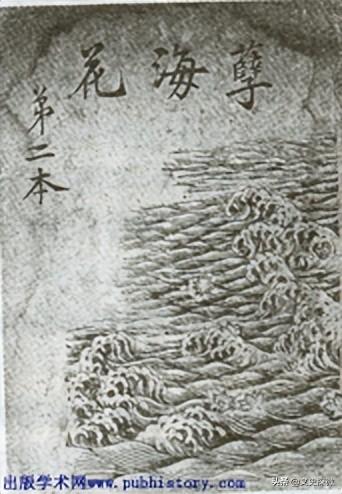 孽海花
第二本
出版学术网www.pubhistory.com
头条 @文史探微